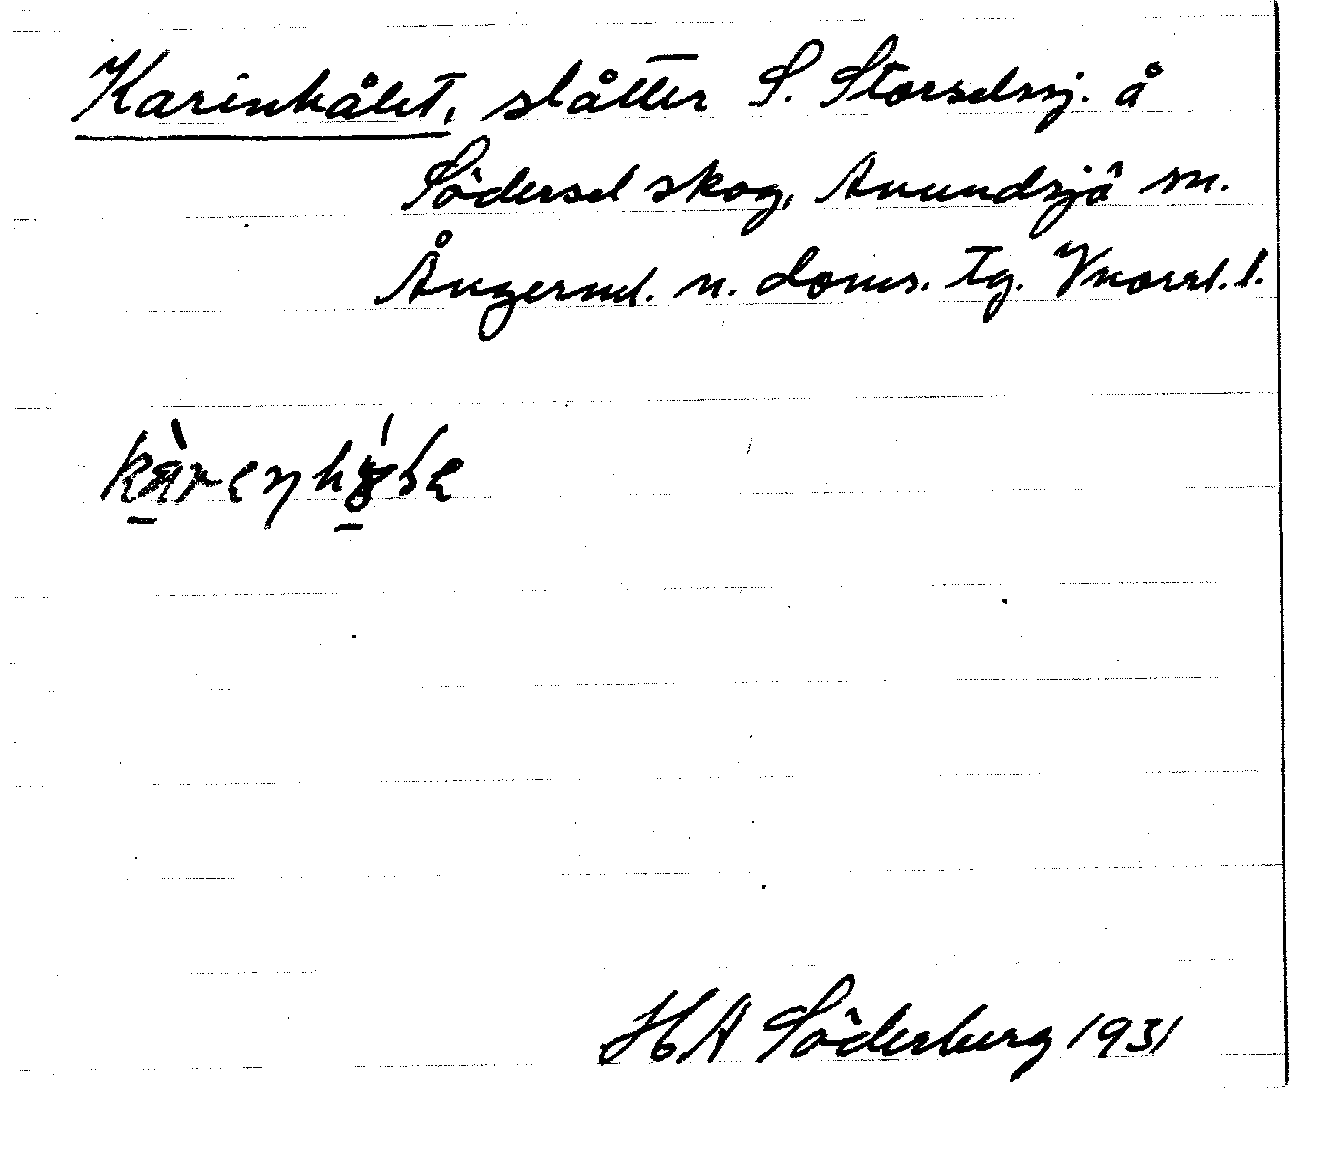 Karinhålet, slåtter S. Storselsj. å
Södersel skog, Anundsjö sn.
Ångerml. n. doms. tg. Vnorrl. l.
H A Söderberg 1931